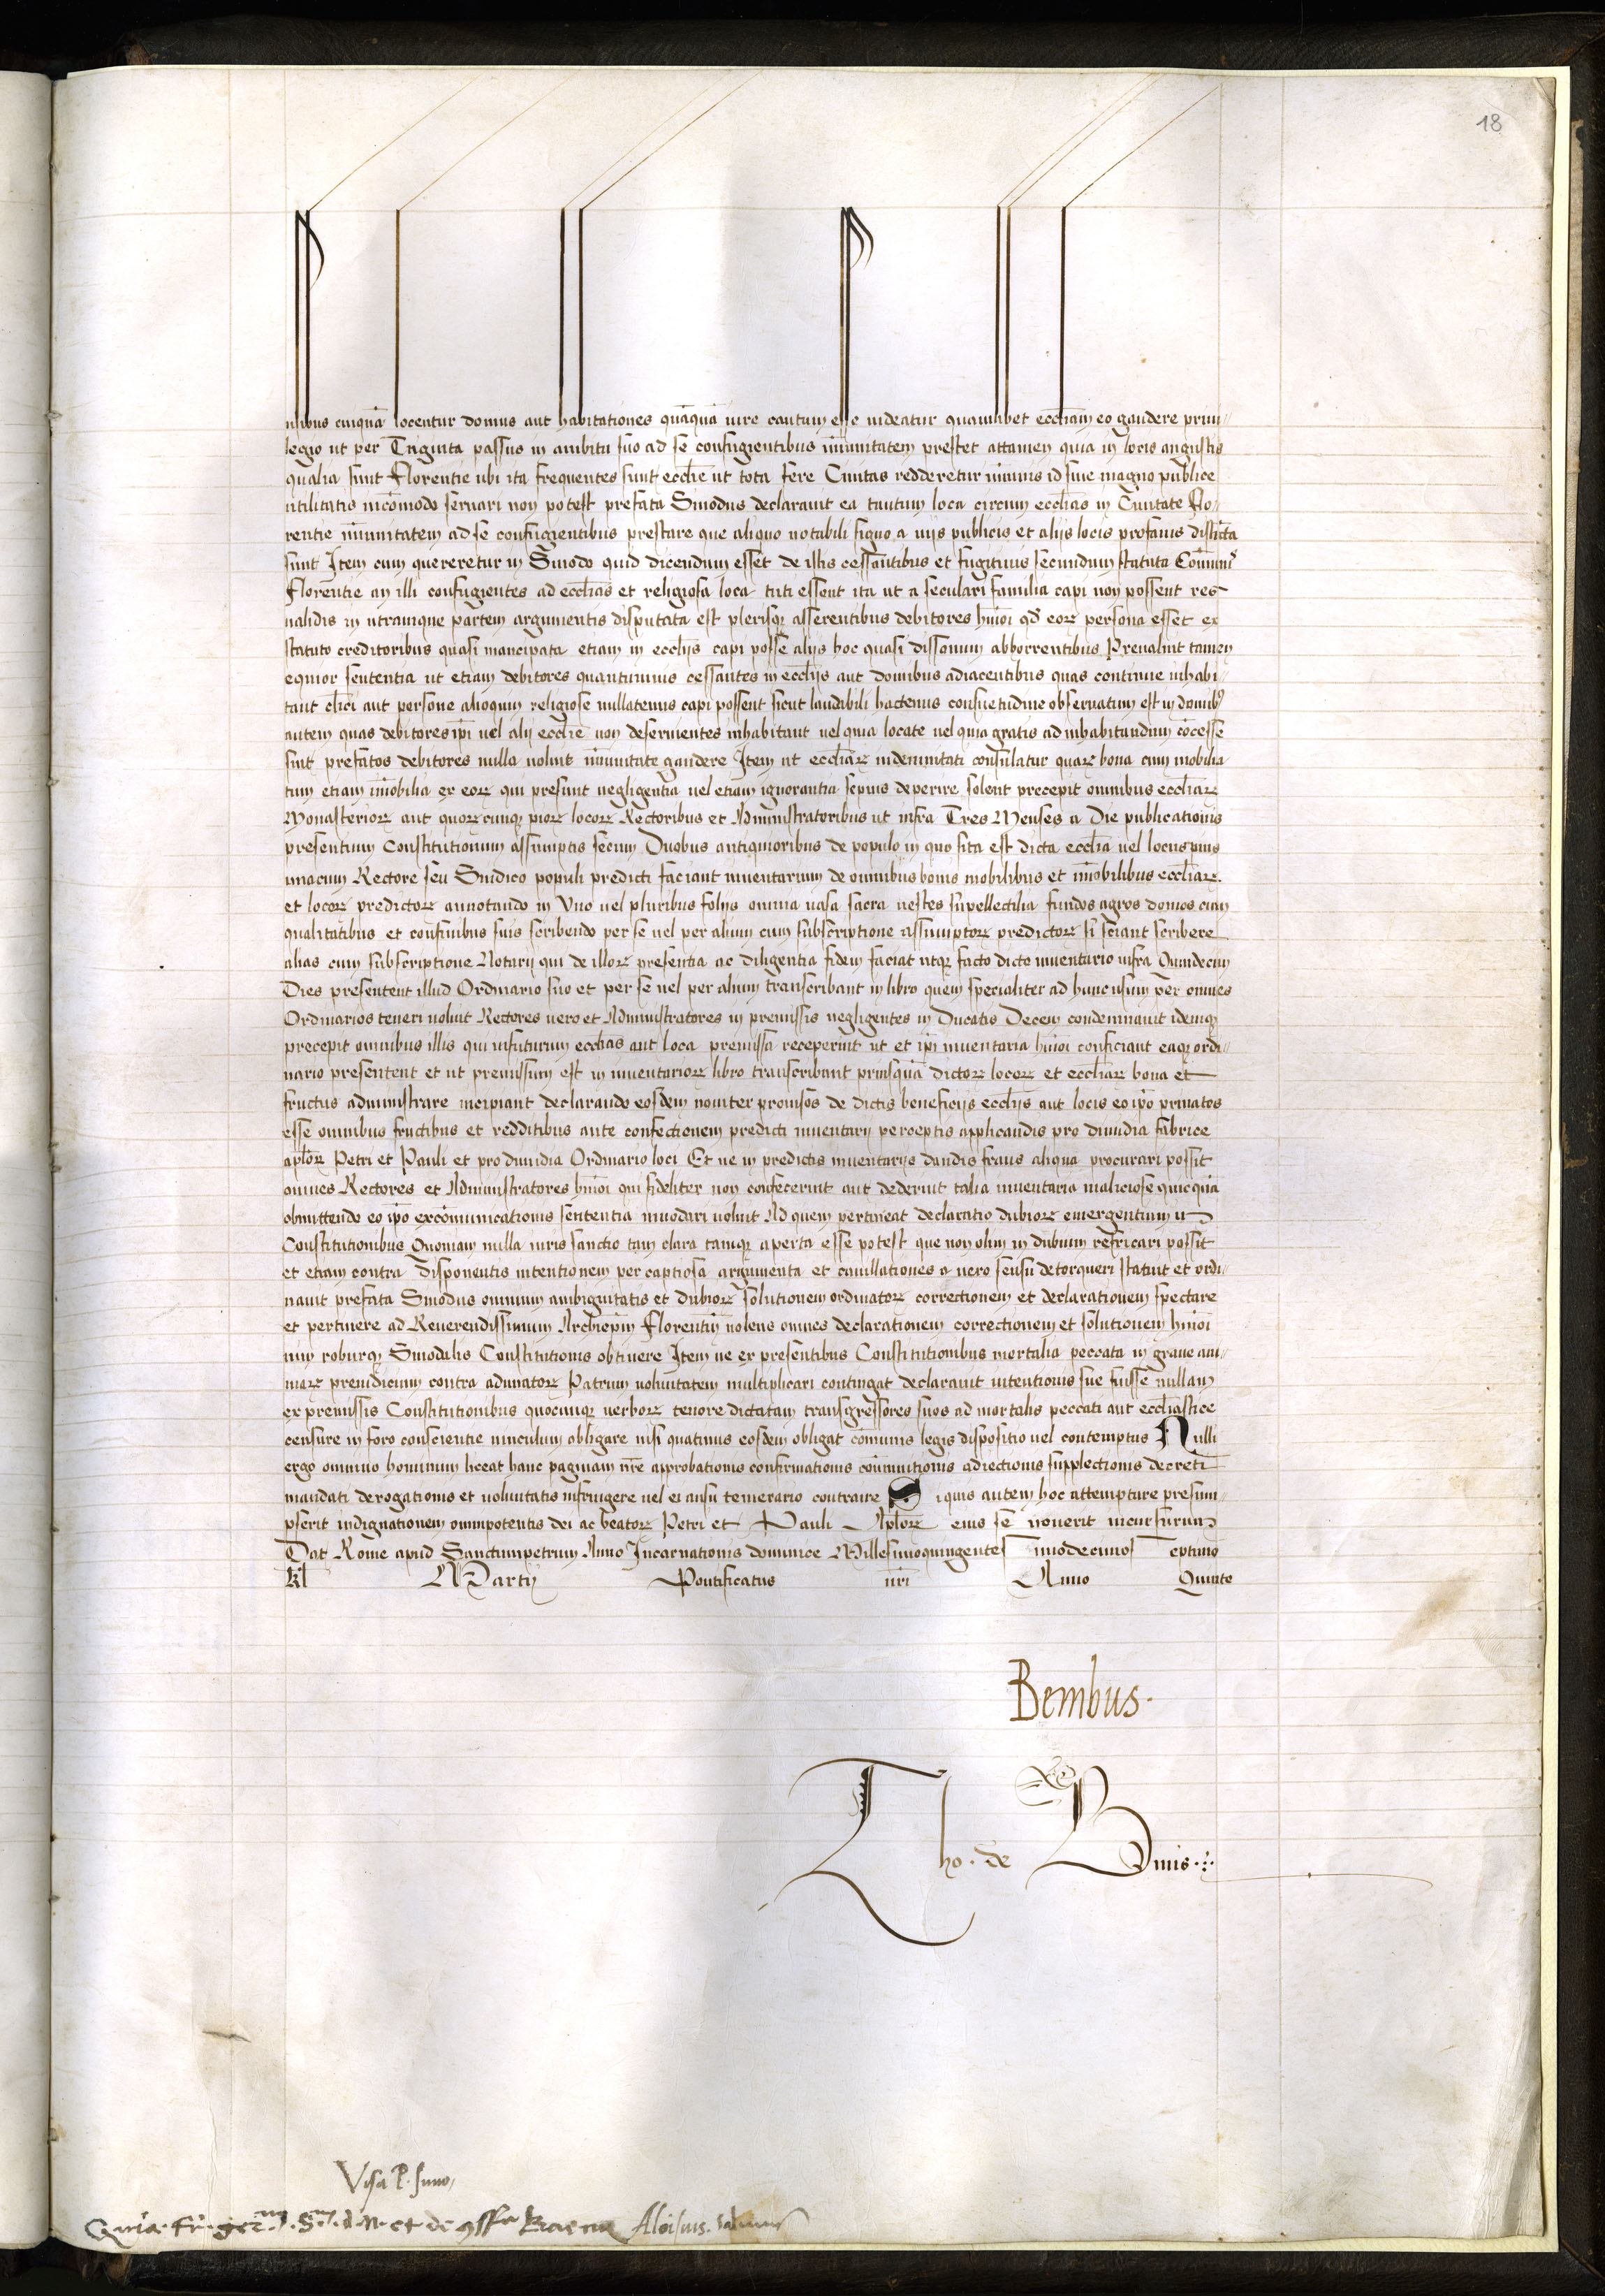 18
usibus cuiquā locentur domus aut habitationes quāquā iure cautum esse uideatur quamlibet eccl̄iam eo gaudere priui-
legio ut per Triginta passus in ambitu suo ad se confugientibus im̄unitatem prestet attamen quia in locis angustis
qualia sunt Florentie ubi ita frequentes sunt eccl̄ie ut tota fere Ciuitas redderetur im̄unis id siue magno publice
utilitatis incōmodo seruari non potest prefata Sinodus declarauit ea tantum loca circum eccl̄ias in Ciuitate Flo-
rentie im̄unitatem ad se confugientibus prestare que aliquo notabili signo a uijs publicis et alijs locis profanis distīcta
sunt Item cum quereretur in Sinodo quid dicendum esset de istis cessātibus et fugitiuis secundum statuta Cōmunis
Florentie an illi confugientes ad eccl̄ias et religiosa loca tuti essent ita ut a seculari familia capi non possent res
ualidis in utramque partem argumentis disputata est plerisq; asserentibus debitores hm̄oi qd̄ eorꝝ persona esset ex
statuto creditoribus quasi mancipata etiam in eccl̄ijs capi posse alijs hoc quasi dissonum abhorrentibus Preualuit tamen
equior sententia ut etiam debitores quantumuis cessantes in eccl̄ijs aut domibus adiacentibus quas continue inhabi-
tant cl̄ici aut persone alioquin religiose nullatenus capi possent sicut laudabili hactenus consuetudine obseruatum est in domibꝰ
autem quas debitores ip̄i uel alij eccl̄ie non deseruientes inhabitant uel quia locate uel quia gratis ad inhabitandum cōcesse
sint prefatos debitores nulla uoluit im̄unitate gaudere Item ut eccl̄iarꝝ indemnitati consulatur quarꝝ bona cum mobilia
tum etiam im̄obilia ex eorꝝ qui presunt negligentia uel etiam ignorantia sepius deperire solent precepit omnibus eccl̄iarꝝ
Monasteriorꝝ aut quorꝝcunq; piorꝝ locorꝝ Rectoribus et Administratoribus ut infra Tres Menses a Die publicationis
presentium Constitutionum assumptis secum Duobus antiquioribus de populo in quo sita est dicta eccl̄ia uel locus pius
unacum Rectore seu Sindico populi predicti faciant inuentarium de omnibus bonis mobilibus et im̄obilibus eccl̄iarꝝ
et locorꝝ predictorꝝ annotando in Uno uel pluribus folijs omnia uasa sacra uestes supellectilia fundos agros domos cum
qualitatibus et confinibus suis scribendo per se uel per alium cum subscriptione assumptorꝝ predictorꝝ si sciant scribere
alias cum subscriptione Notarij qui de illorꝝ presentia ac diligentia fidem faciat utq; facto dicto inuentario infra Quindecim
Dies presentent illud Ordinario suo et per se uel per alium transcribant in libro quem specialiter ad hunc usum per omnes
Ordinarios teneri uoluit Rectores uero et Administratores in premissis negligentes in Ducatis Decem condemnauit idemq;
precepit omnibus illis qui in futurum eccl̄ias aut loca premissa receperint ut et ip̄i inuentaria hm̄oi conficiant eaq; ordi-
nario presentent et ut premissum est in inuentariorꝝ libro transcribant priusquā dictorꝝ locorꝝ et eccl̄iarꝝ bona et
fructus administrare incipiant declarando eosdem nouiter prouisos de dictis beneficijs eccl̄ijs aut locis eo ip̄o priuatos
esse omnibus fructibus et redditibus ante confectionem predicti inuentarij perceptis applicandis pro dimidia fabrice
apl̄orꝝ Petri et Pauli et pro dimidia Ordinario loci Et ne in predictis inuentarijs dandis fraus aliqua procurari possit
omnes Rectores et Administratores hm̄oi qui fideliter non confecerint aut dederint talia inuentaria maliciose quicquā
obmittendo eo ip̄o excōmunicationis sententia innodari uoluit Ad quem pertineat declaratio dubiorꝝ emergentium in
Constitutionibus Quoniam nulla iuris sanctio tam clara tamq; aperta esse potest que non olim in dubium refricari possit
et etiam contra disponentis intentionem per captiosa argumenta et cauillationes a uero sensu detorqueri statuit et ordi-
nauit prefata Sinodus omnium ambiguitatis et dubiorꝝ solutionem ordinatorꝝ correctionem et declarationem spectare
et pertinere ad Reuerendissimum Archiep̄m Florentin̄ uolens omnes declarationem correctionem et solutionem hm̄oi
uim roburq; Sinodalis Constitutionis obtinere Item ne ex presentibus Constitutionibus mortalia peccata in graue ani-
marꝝ preiudicium contra adunatorꝝ Patrum uoluntatem multiplicari contingat declarauit intentionis sue fuisse nullam
ex premissis Constitutionibus quocunq; uerborꝝ tenore dictatam transgressores suos ad mortalis peccati aut eccl̄iastice
censure in foro conscientie uinculum obligare nisi quatinus eosdem obligat cōmunis legis dispositio uel contemptus Nulli
ergo omnino hominum liceat hanc paginam nr̄e approbationis confirmationis cōmunitionis adiectionis supplectionis decreti
mandati derogationis et uoluntatis infringere uel ei ausu temerario contraire Siquis autem hoc attemptare presum-
pserit indignationem omnipotentis dei ac beatorꝝ Petri et Pauli Apl̄orꝝ eius se nouerit incursurum
Dat Rome apud Sanctumpetrum Anno Incarnationis dominice Millesimoquingentesimodecimoseptimo
kl̄ Martij Pontificatus nr̄i Anno Quinto
Bembus.
Tho. de Binis
Visa P.